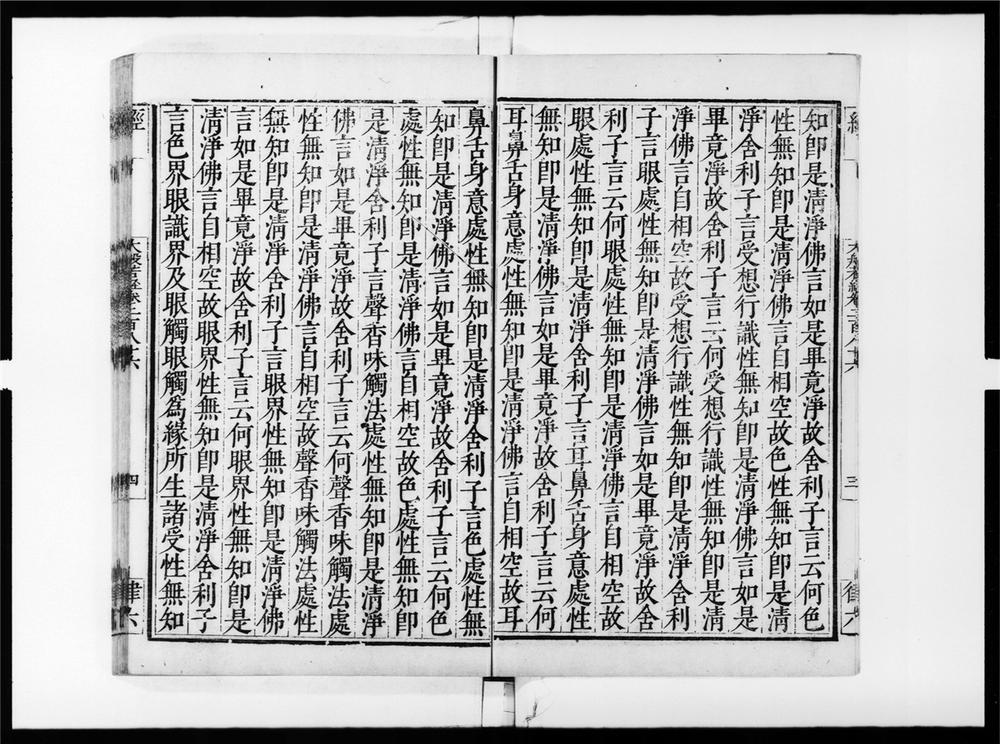 知卽是清淨佛言如是畢竟淨故舍利子言云何色
性無知卽是清淨佛言自相空故色性無知卽是清
淨舍利子言受想行識性無知卽是清淨佛言如是
畢竟淨故舍利子言云何受想行識性無知卽是清
淨佛言自相空故受想行識性無知卽是清淨舍利
子言眼處性無知卽是清淨佛言如是畢竟淨故舍
利子言云何眼處性無知卽是清淨佛言自相空故
眼處性無知卽是清淨舍利子言耳鼻舌身意處性
無知卽是清淨佛言如是畢竟淨故舍利子言云何
耳鼻舌身意處性無知卽是清淨佛言自相空故耳
鼻舌身意處性無知卽是清淨舍利子言色處性無
知卽是清淨佛言如是畢竟淨故舍利子言云何色
處性無知卽是清淨佛言自相空故色處性無知卽
是清淨舍利子言聲香味觸法處性無知卽是清淨
佛言如是畢竟淨故舍利子言云何聲香味觸法處
性無知卽是清淨佛言自相空故聲香味觸法處性
無知卽是清淨舍利子言眼界性無知卽是清淨佛
言如是畢竟淨故舍利子言云何眼界性無知卽是
清淨佛言自相空故眼界性無知卽是清淨舍利子
言色界眼識界及眼觸眼觸爲緣所生諸受性無知
經 大般若經卷二百八十六 四 律六